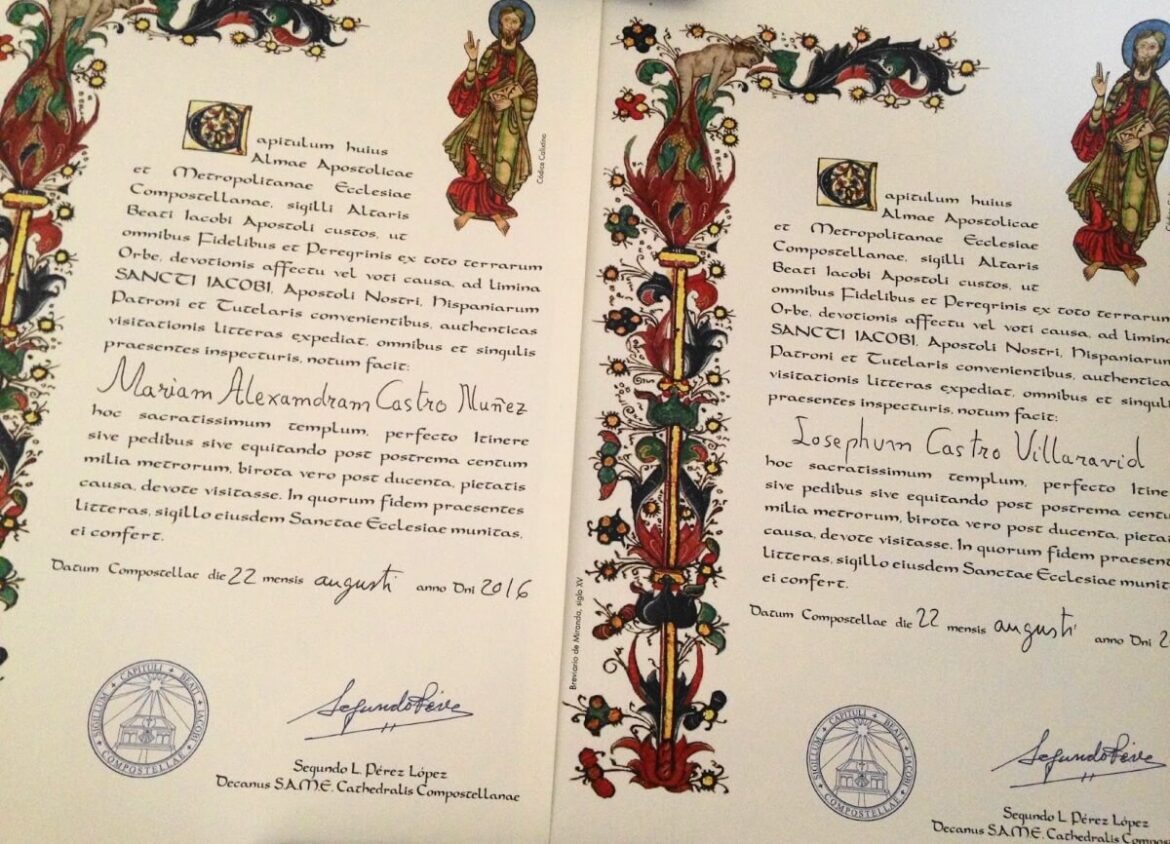 Capitulum huius
Almae Apostolicae
et Metropolitanae Ecclesiae
Compostellanae, sigilli Altaris
Beati Iacobi Apostoli custos, ut
omnibus Fidelibus et Peregrinis ex toto terrarum
Orbe, devotionis affectu vel voti causa, ad limina
SANCTI IACOBI, Apostoli Nostri, Hispaniarum
Patroni et Tutelaris convenientibus, authenticas
visitationis litteras expediat, omnibus et singulis
praesentes inspecturis, notum facit:
Mariam Alexamdram Castro Nuñez
hoc sacratissimum templum, perfecto Itinere
sive pedibus sive equitando post postrema centum
milia metrorum, birota vero post ducenta, pietatis
causa, devote visitasse. In quorum fidem praesentes
litteras, sigillo eiusdem Sanctae Ecclesiae munitas,
ei confert.
Datum Compostellae die 22 mensis augusti anno Dni 2016
SIGILLUM CAPITULI BEATI IACOBI COMPOSTELLAE
Segundo Pérez
Segundo L. Pérez López
Decanus S.A.M.E. Cathedralis Compostellanae
Códice Calixtino
Capitulum huius
Almae Apostolicae
et Metropolitanae Ecclesiae
Compostellanae, sigilli Altaris
Beati Iacobi Apostoli custos, ut
omnibus Fidelibus et Peregrinis ex toto terrarum
Orbe, devotionis affectu vel voti causa, ad limina
SANCTI IACOBI, Apostoli Nostri, Hispaniarum
Patroni et Tutelaris convenientibus, authentica
visitationis litteras expediat, omnibus et singuli
praesentes inspecturis, notum facit:
Iosephum Castro Villaravid
hoc sacratissimum templum, perfecto Itine
sive pedibus sive equitando post postrema centu
milia metrorum, birota vero post ducenta, pietat
causa, devote visitasse. In quorum fidem praesent
litteras, sigillo eiusdem Sanctae Ecclesiae munit
ei confert.
Datum Compostellae die 22 mensis augusti anno Dni 2
Breviario de Miranda, siglo XV
SIGILLUM CAPITULI BEATI IACOBI COMPOSTELLAE
Segundo Pérez
Segundo L. Pérez López
Decanus S.A.M.E. Cathedralis Compost